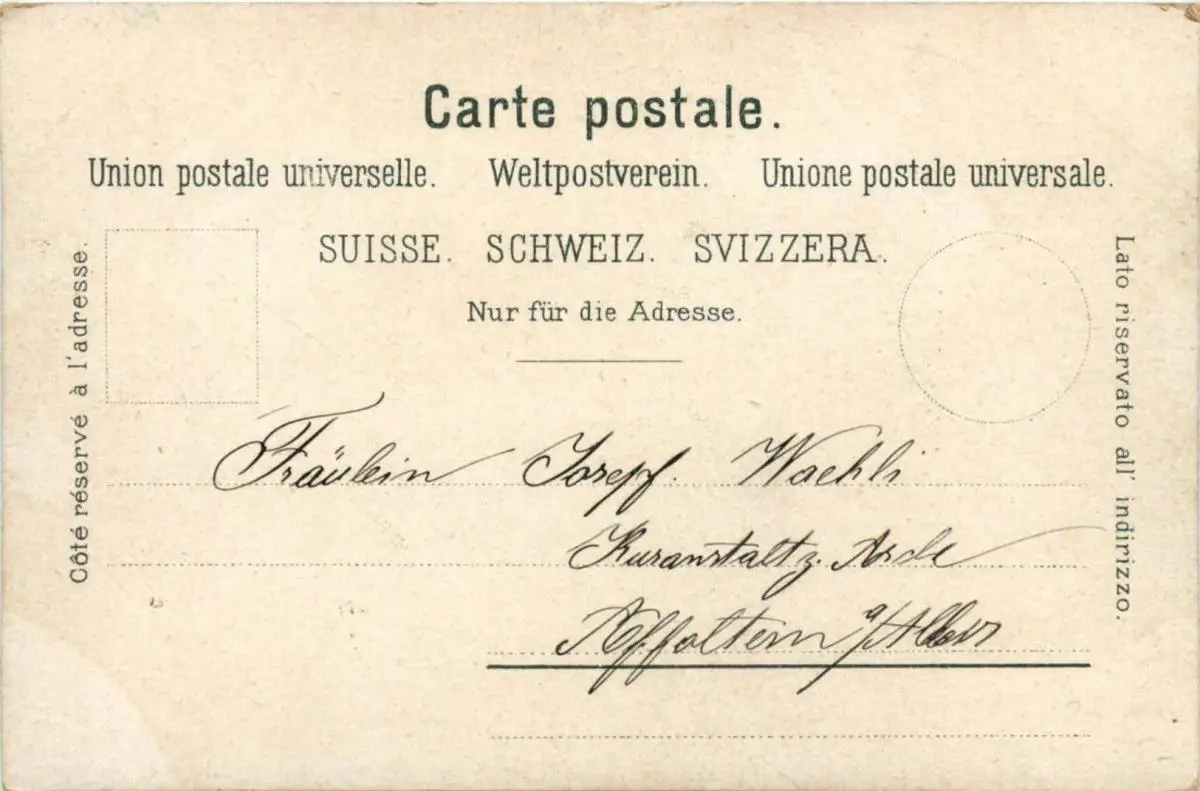 Carte postale.
Union postale universelle. Weltpostverein. Unione postale universale.
SUISSE. SCHWEIZ. SVIZZERA.
Nur für die Adresse.
Côté réservé à l'adresse.
Lato riservato all' indirizzo.
Fräulein Josepf. Waehli
Kuranstalt z. Arche
Affoltern a/Albis